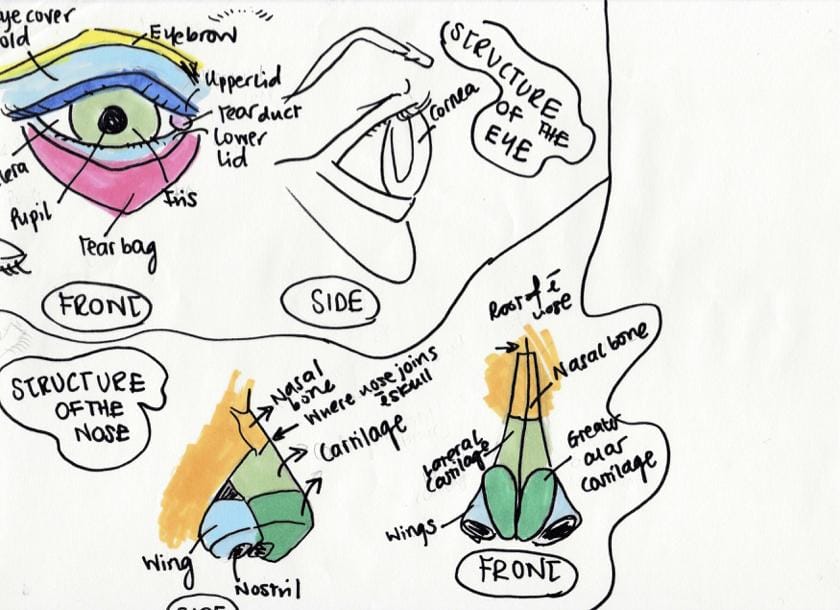 ye cover
old
Eyebrow
Upper Lid
Tear duct
Lower
Lid
lera
Pupil
Iris
Tear bag
FRONT
Cornea
SIDE
STRUCTURE
OF THE
EYE
STRUCTURE
OF THE
NOSE
Nasal
bone
Where nose joins
ē skull
Cartilage
Wing
Nostril
SIDE
Root of ē
nose
Nasal bone
Lateral
Cartilage
Greater
alar
cartilage
Wings
FRONT